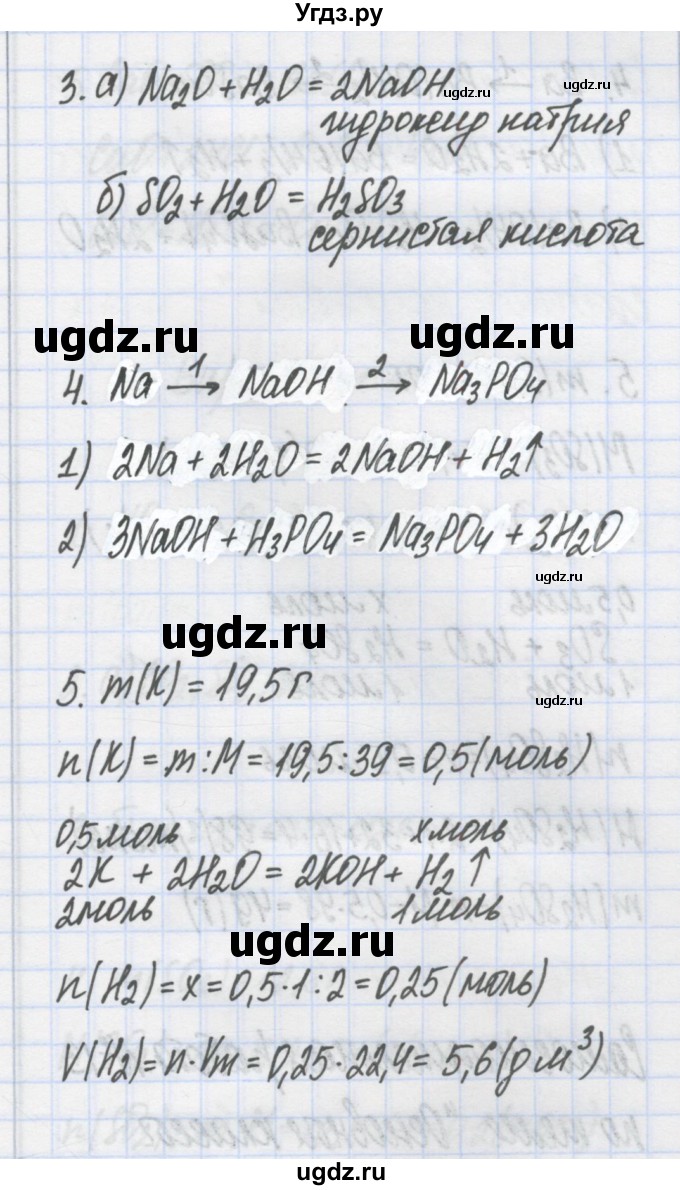 Угдз.ру
3. а) Na₂O + H₂O = 2NaOH
ugdz.ru
ugdz.ru
гидроксид натрия
б) SO₂ + H₂O = H₂SO₃
сернистая кислота
ugdz.ru
ugdz.ru
4. Na —1→ NaOH —2→ Na₃PO₄
1) 2Na + 2H₂O = 2NaOH + H₂↑
2) 3NaOH + H₃PO₄ = Na₃PO₄ + 3H₂O
ugdz.ru
ugdz.ru
5. m(K) = 19,5 г
ugdz.ru
n(K) = m : M = 19,5 : 39 = 0,5 (моль)
0,5 моль x моль
2K + 2H₂O = 2KOH + H₂↑
2 моль 1 моль
ugdz.ru
n(H₂) = x = 0,5 · 1 : 2 = 0,25 (моль)
V(H₂) = n · Vm = 0,25 · 22,4 = 5,6 (дм³)
ugdz.ru